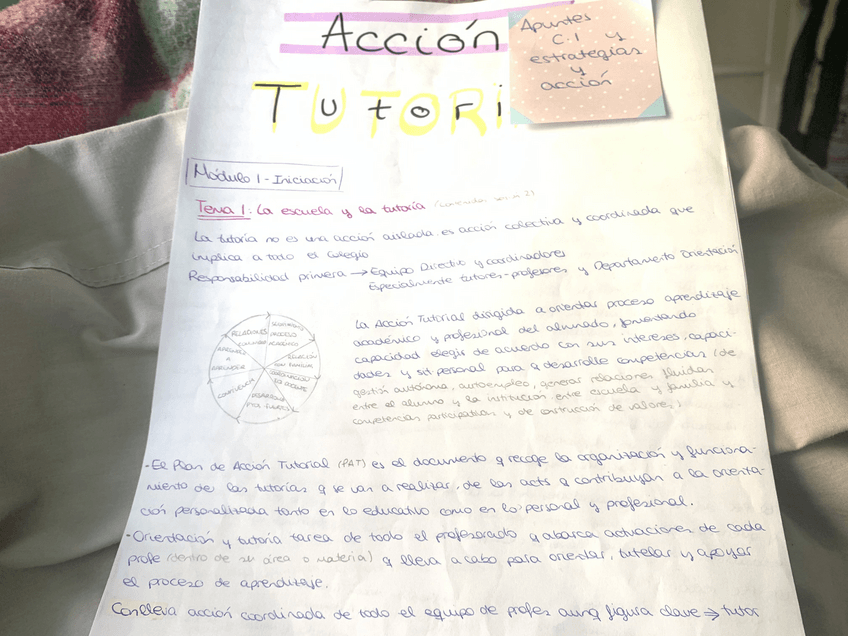 Acción
Tutori
Apuntes
C.1 y
estrategias
y
acción
Módulo 1 - Iniciación
Tema 1: La escuela y la tutoría
La tutoría no es una acción aislada, es acción colectiva y coordinada que
implica a todo el colegio
Responsabilidad primera → Equipo Directivo y coordinadores
Especialmente tutores-profesores y Departamento Orientación
RELACIONES
SEGUIMIENTO
PROCESO
ACADÉMICO
RELACIÓN
CON FAMILIAS
COORDINACIÓN
EQ. DOCENTE
DESARROLLO
CONVIVENCIA
APRENDER
A
APRENDER
La Acción Tutorial dirigida a orientar proceso aprendizaje
académico y profesional del alumnado, fomentando
capacidad elegir de acuerdo con sus intereses, capaci-
dades y sit. personal para q desarrolle competencias (de
gestión autónoma, autoempleo, generar relaciones fluidas
entre el alumno y la institución entre escuela y familia y
competencias participativas y de construcción de valores.)
· El Plan de Acción Tutorial (PAT) es el documento q recoge la organización y funciona-
miento de las tutorías q se van a realizar, de las acts q contribuyan a la orienta-
ción personalizada tanto en lo educativo como en lo personal y profesional.
· Orientación y tutoría tarea de todo el profesorado y abarca actuaciones de cada
profe (dentro de su área o materia) q lleva a cabo para orientar, tutelar y apoyar
el proceso de aprendizaje.
Conlleva acción coordinada de todo el equipo de profes aunq figura clave → tutor